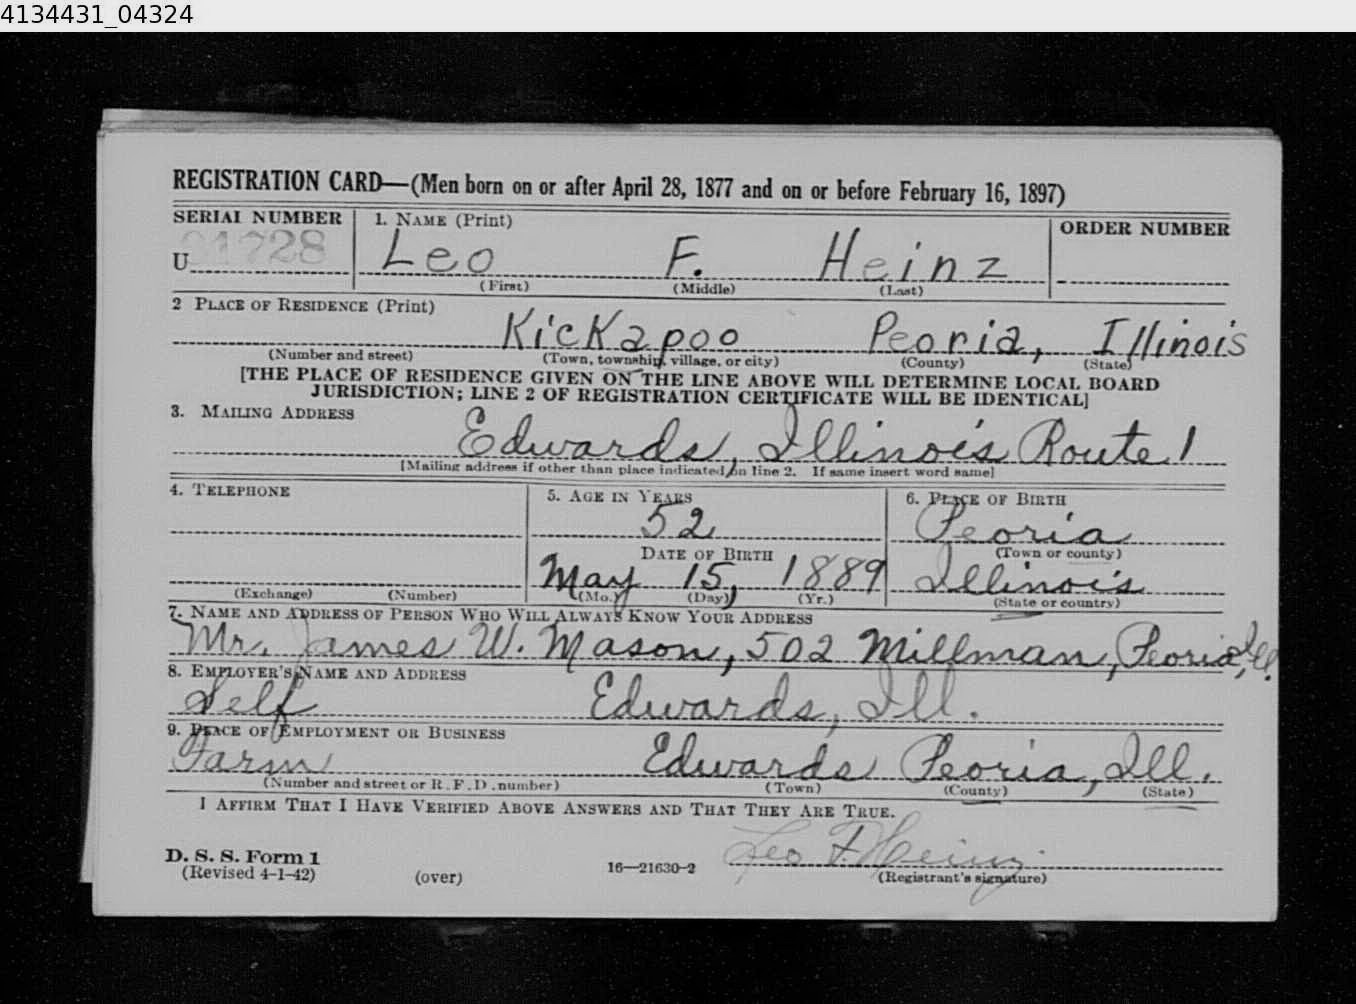 4134431_04324
REGISTRATION CARD—(Men born on or after April 28, 1877 and on or before February 16, 1897)
SERIAL NUMBER 1. NAME (Print) ORDER NUMBER
U 01728 Leo F. Heinz
(First) (Middle) (Last)
2 PLACE OF RESIDENCE (Print)
Kickapoo Peoria, Illinois
(Number and street) (Town, township, village, or city) (County) (State)
[THE PLACE OF RESIDENCE GIVEN ON THE LINE ABOVE WILL DETERMINE LOCAL BOARD
JURISDICTION; LINE 2 OF REGISTRATION CERTIFICATE WILL BE IDENTICAL]
3. MAILING ADDRESS
Edwards, Illinois Route 1
[Mailing address if other than place indicated on line 2. If same insert word same]
4. TELEPHONE 5. AGE IN YEARS 6. PLACE OF BIRTH
52 Peoria
DATE OF BIRTH (Town or county)
May 15, 1889 Illinois
(Exchange) (Number) (Mo.) (Day) (Yr.) (State or country)
7. NAME AND ADDRESS OF PERSON WHO WILL ALWAYS KNOW YOUR ADDRESS
Mr. James W. Mason, 502 Millman, Peoria, Ill.
8. EMPLOYER'S NAME AND ADDRESS
Self Edwards, Ill.
9. PLACE OF EMPLOYMENT OR BUSINESS
Farm Edwards Peoria, Ill.
(Number and street or R. F. D. number) (Town) (County) (State)
I AFFIRM THAT I HAVE VERIFIED ABOVE ANSWERS AND THAT THEY ARE TRUE.
Leo F. Heinz
D. S. S. Form 1
(Revised 4-1-42) (over) 16—21630-2 (Registrant's signature)